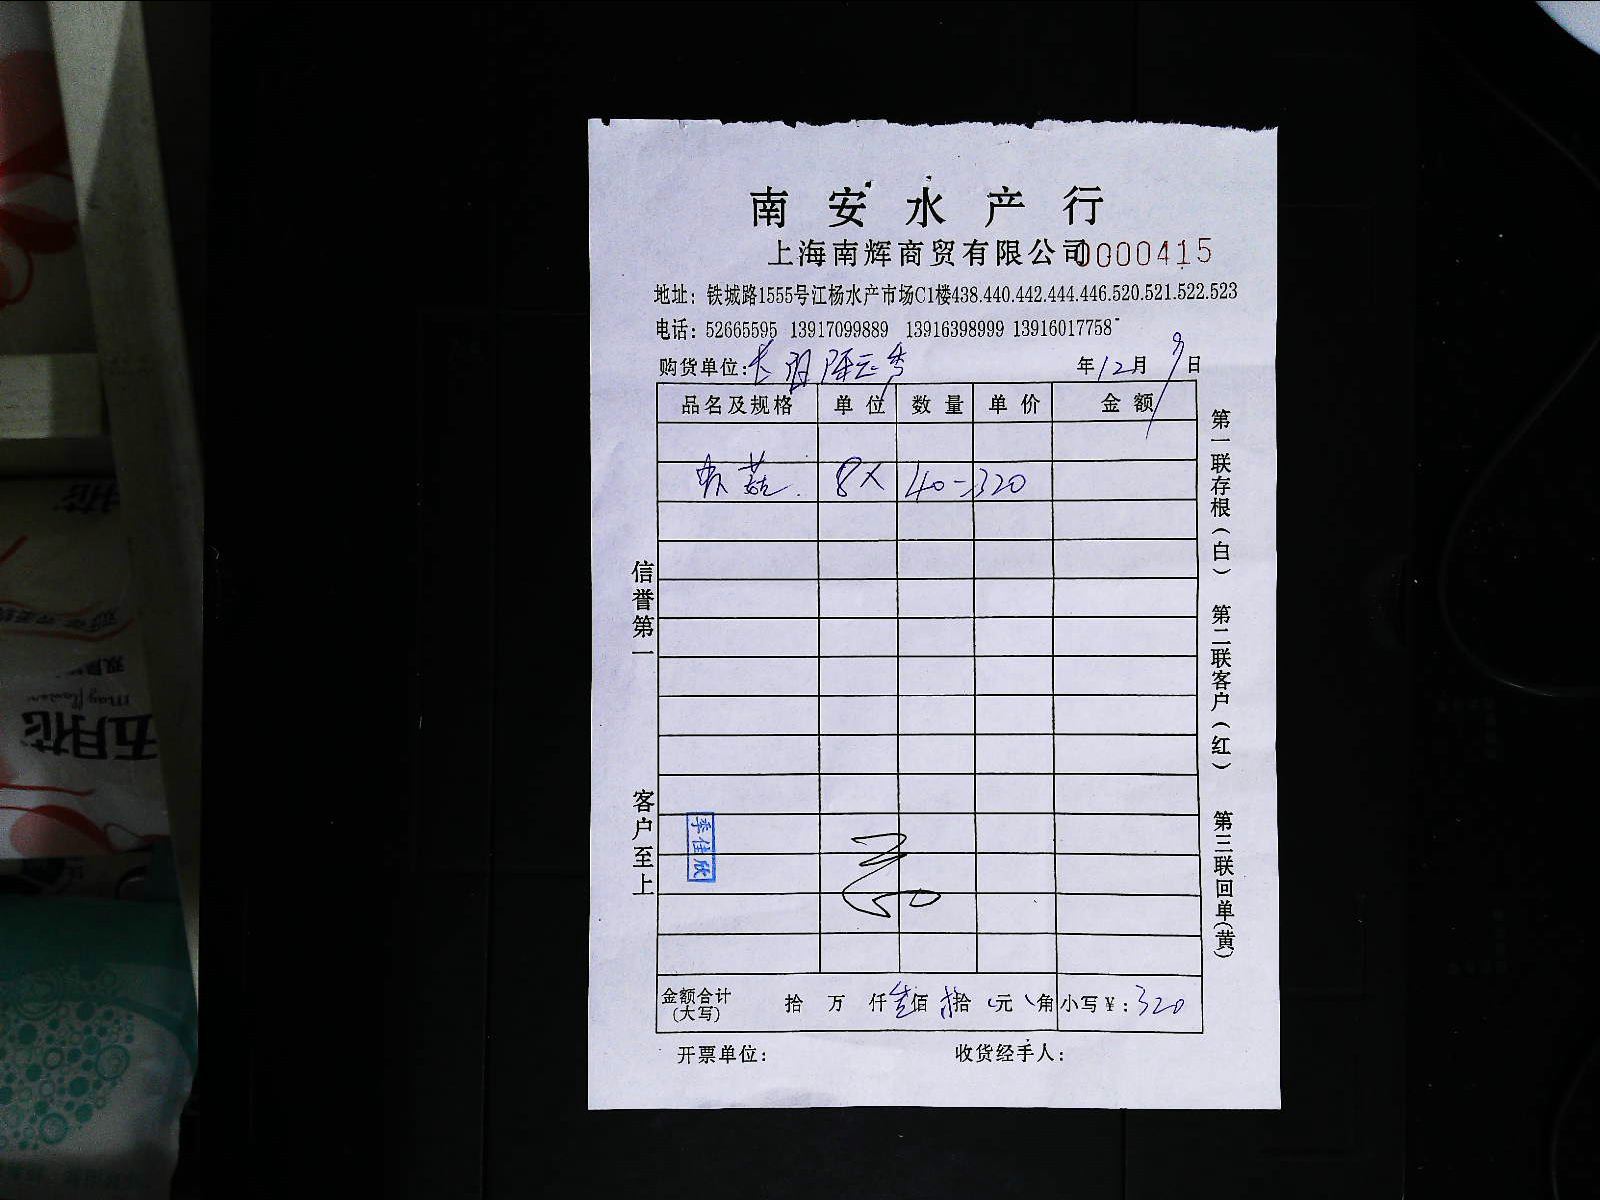 南安水产行
上海南辉商贸有限公司 0000415
地址：铁城路1555号江杨水产市场C1楼438.440.442.444.446.520.521.522.523
电话：52665595 13917099889 13916398999 13916017758
购货单位： 年12月9日
品名及规格 单位 数量 单价 金额
8× 40=320
信誉第一
客户至上
季佳欣
第一联存根（白） 第二联客户（红） 第三联回单（黄）
金额合计（大写） 拾 万 仟 佰 拾 元 角 小写￥：320
开票单位： 收货经手人：
五月花